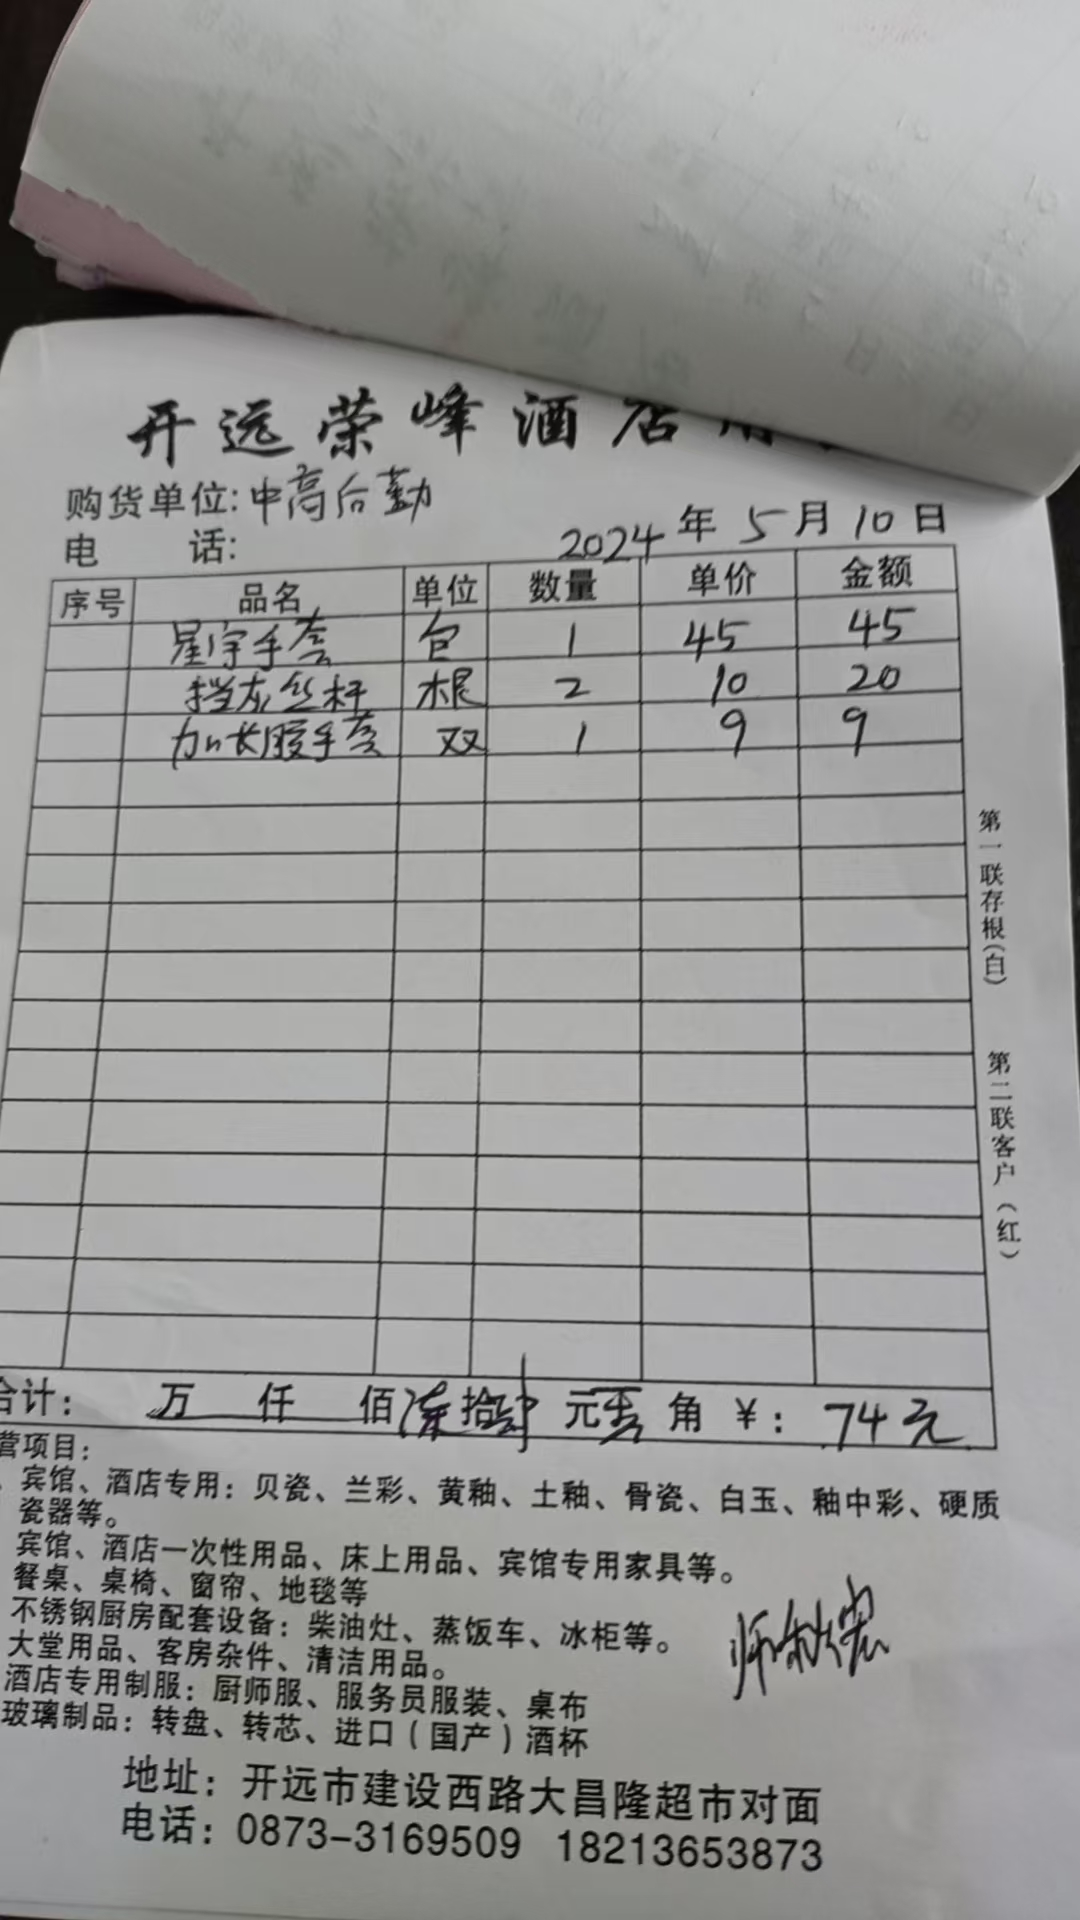 开远荣峰酒店用
购货单位:中高后勤
电 话: 2024年5月10日
序号 品名 单位 数量 单价 金额
星宇手套 包 1 45 45
挡灰丝杆 根 2 10 20
加长胶手套 双 1 9 9
第一联存根(白) 第二联客户(红)
合计: 万 仟 佰柒拾肆元 角 ¥:74元
营项目:
、宾馆、酒店专用:贝瓷、兰彩、黄釉、土釉、骨瓷、白玉、釉中彩、硬质
瓷器等。
宾馆、酒店一次性用品、床上用品、宾馆专用家具等。
餐桌、桌椅、窗帘、地毯等
不锈钢厨房配套设备:柴油灶、蒸饭车、冰柜等。
大堂用品、客房杂件、清洁用品。
酒店专用制服:厨师服、服务员服装、桌布
玻璃制品:转盘、转芯、进口(国产)酒杯
地址:开远市建设西路大昌隆超市对面
电话:0873-3169509 18213653873